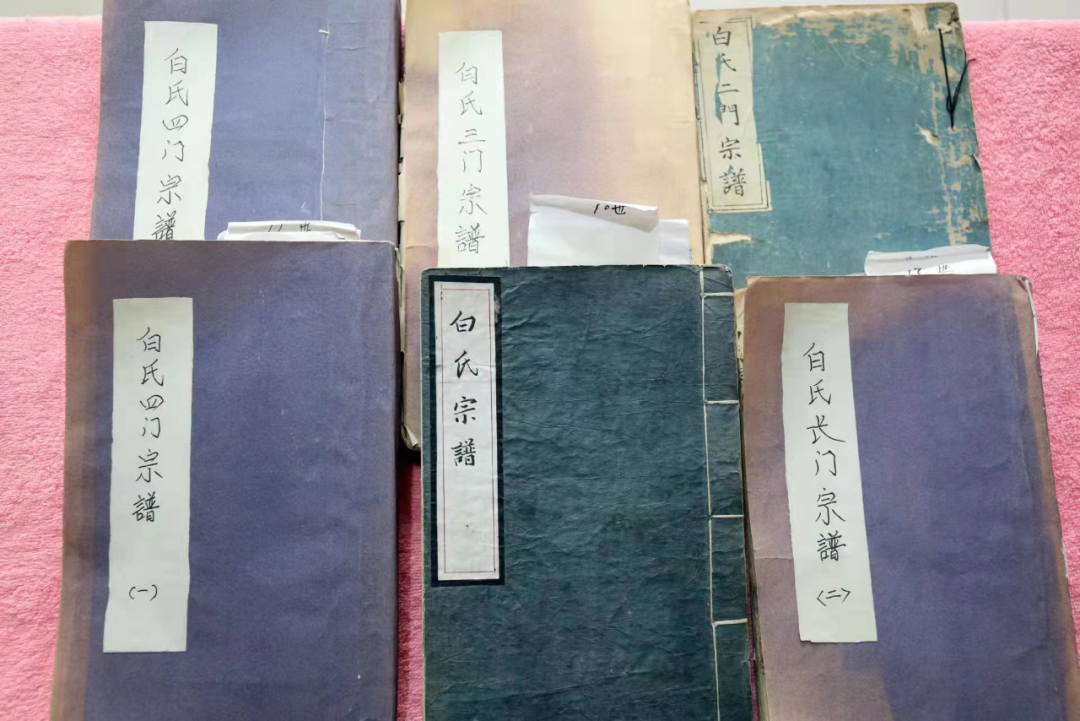 白氏四门宗譜
白氏三门宗譜
白氏二門宗譜
11世
10世
白氏四门宗譜
(一)
白氏宗譜
白氏长门宗譜
<二>